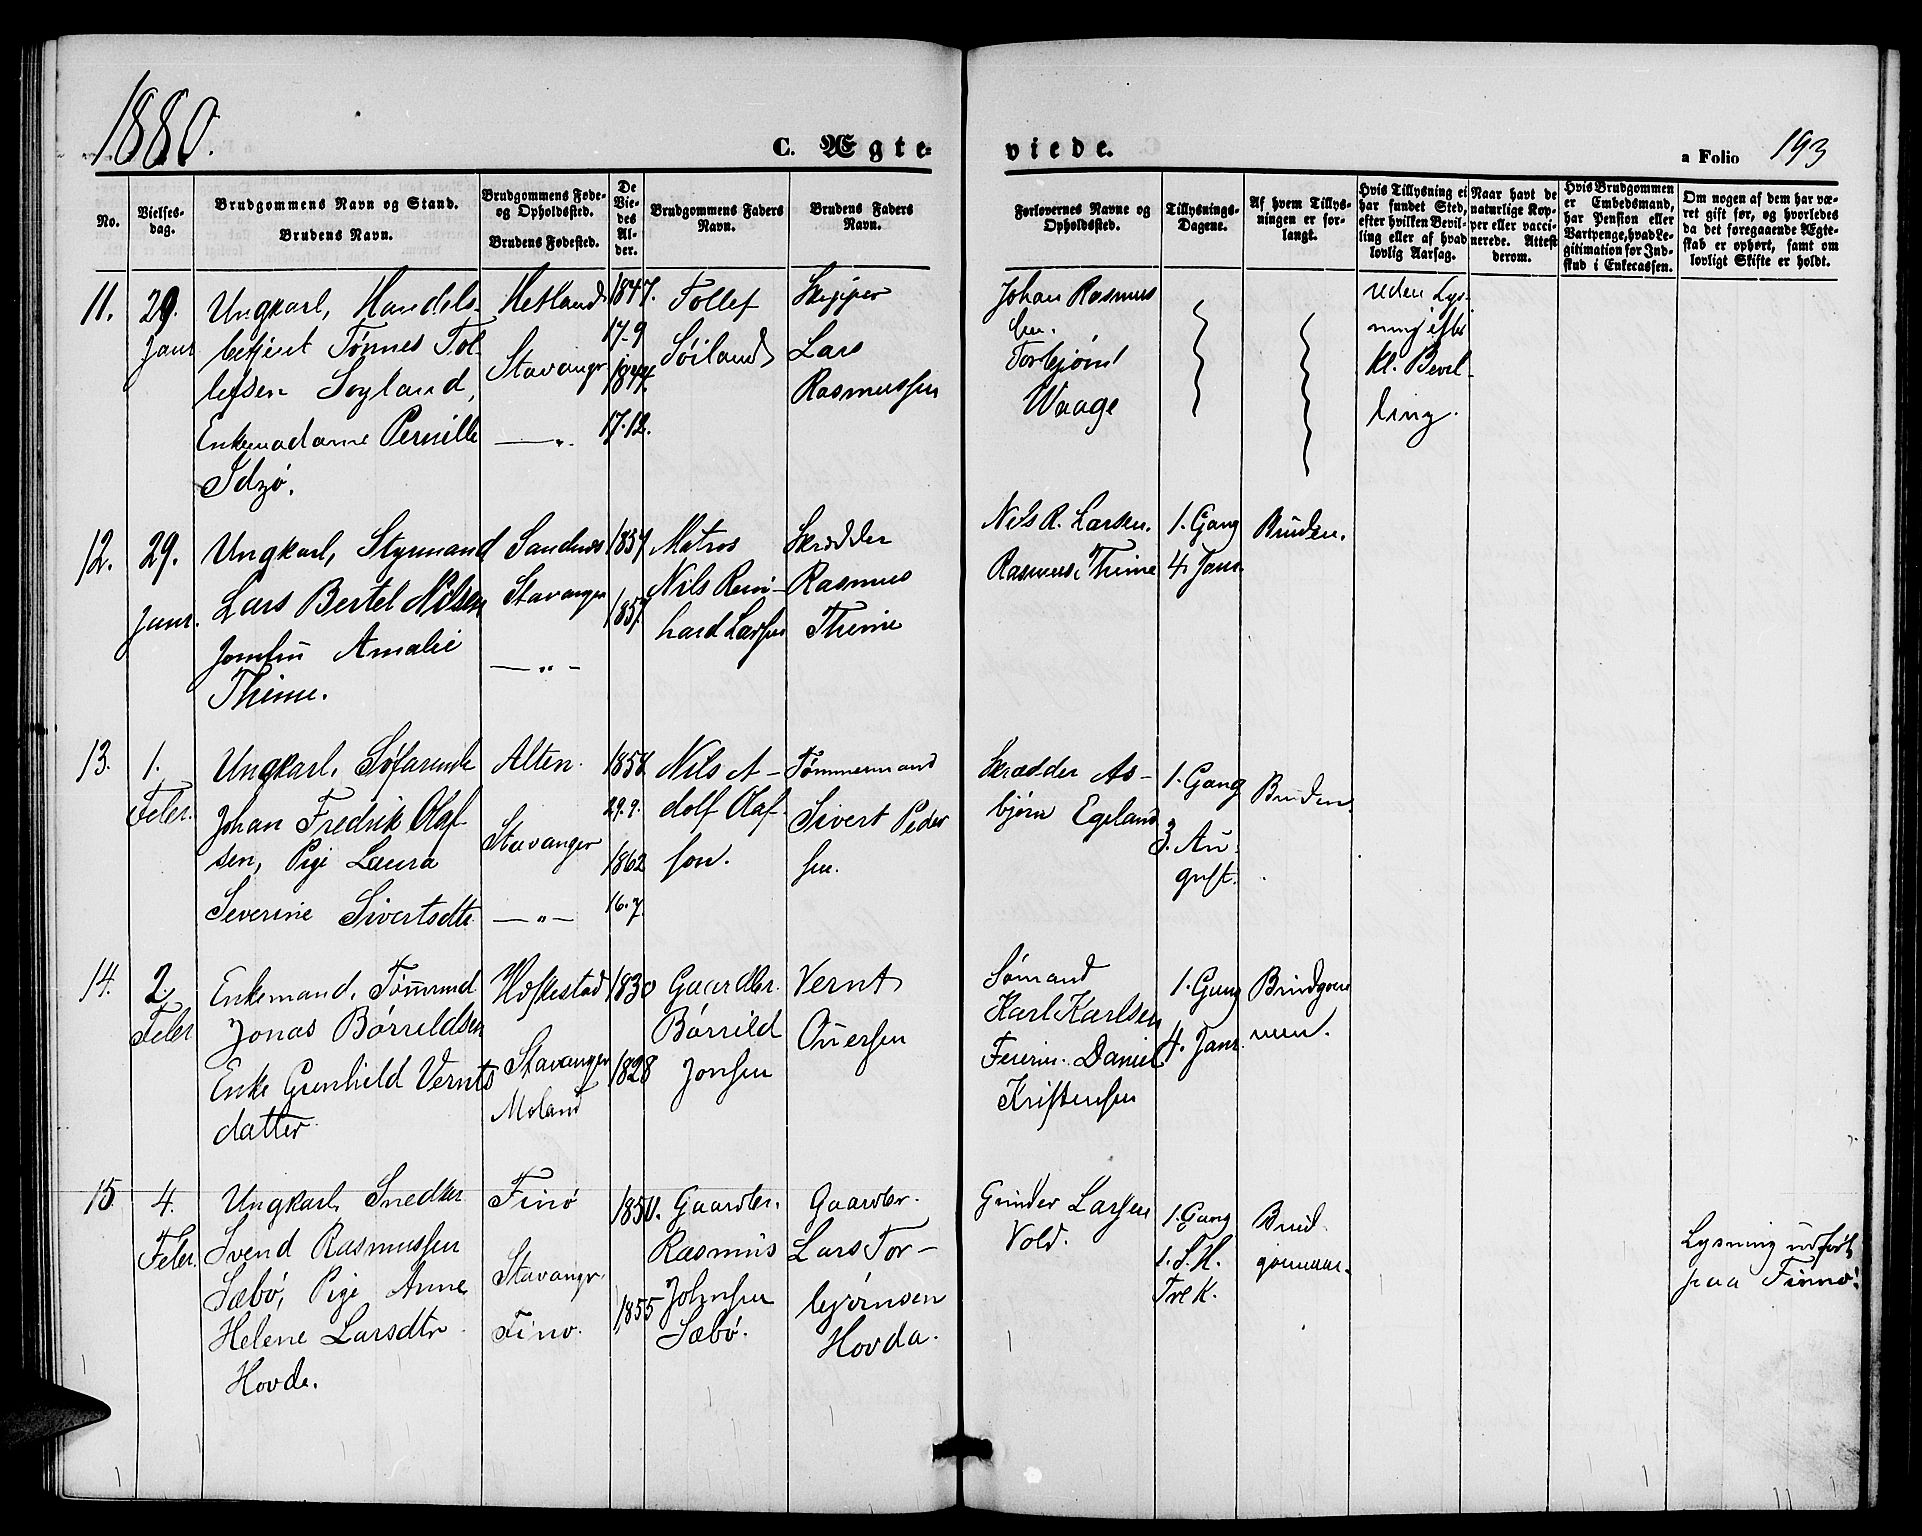 1880.
C. Ægte-
viede.
a Folio 193
No.
Vielses-
dag.
Brudgommens Navn og Stand.
Brudens Navn.
Brudgommens Føde-
og Opholdssted.
Brudens Fødested.
De
Vie-
des
Al-
der.
Brudgommens Faders
Navn.
Brudens Faders
Navn.
Forlovernes Navne og
Opholdssted.
Tillysnings-
Dagene.
Af hvem Tillys-
ningen er for-
langt.
Hvis Tillysning ei
har fundet Sted,
efter hvilken Bevil-
ling eller af hvad
lovlig Aarsag.
Naar havt de
naturlige Kop-
per eller vacci-
nerede. Attest
derom.
Hvis Brudgommen
er Embedsmand,
har Pension eller
Vartpenge, hvad Le-
gitimation for Ind-
skud i Enkecassen.
Om nogen af dem har væ-
ret gift før, og hvorledes
da det foregaaende Ægte-
skab er ophørt, samt om
lovligt Skifte er holdt.
11.
29.
Janr
Ungkarl, Handels-
betjent Tønnes Tol-
lefsen Soyland,
Enkemadame Pernille
Idzø.
Hetland
Stavangr
—„—
1847.
17.9
1844.
17.12.
Tollef
Søiland
Skipper
Lars
Rasmussen
Johan Rasmus
sen.
Torbjørn
Waage
uden Lys-
ning efter
kl. Bevil-
ling.
12.
29.
Janr.
Ungkarl, Styrmand
Lars Bertel Nilsen
Jomfru Amalie
Thime.
Sandnes
Stavanger
—„—
1857
1857.
Matros
Nils Rein-
hard Larsen
Skrædder
Rasmus
Thime
Nils R. Larsen.
Rasmus Thime
1. Gang
4. Janr.
Bruden.
13.
1.
Febr.
Ungkarl, Søfarende
Johan Fredrik Olaf
sen, Pige Laura
Severine Sivertsdtr
Alten.
Stavanger
—„—
1858.
29.9.
1862
16.7.
Nils A-
dolf Olaf-
sen.
Tømmermand
Sivert Peder
sen.
Skrædder As-
bjørn Egeland
1. Gang
3. Au-
gust.
Bruden.
14.
2.
Febr
Enkemand, Tømmrmd.
Jonas Børrildsen
Enke Gunhild Vernts
datter
Høfkestad
Stavanger
Moland
1830
1828
Gaardbr.
Børrild
Jonsen
Vernt
Omersen
Sømand
Karl Karlsen
Daniel
Kristensen
1. Gang
4. Janr.
Brudgom
men.
15.
4.
Febr.
Ungkarl, Snedker
Svend Rasmussen
Sæbø, Pige Anne
Helene Larsdtr
Hovda.
Finø
Stavangr.
Finø.
1850.
1855
Gaardbr.
Rasmus
Johnsen
Sæbø.
Gaardbr.
Lars Tor-
bjørnsen
Hovda.
Gunder Larsen
Vold.
1. Gang
1. S. H.
Tre K.
Brud-
gommen.
Lysning udført
paa Finnø.